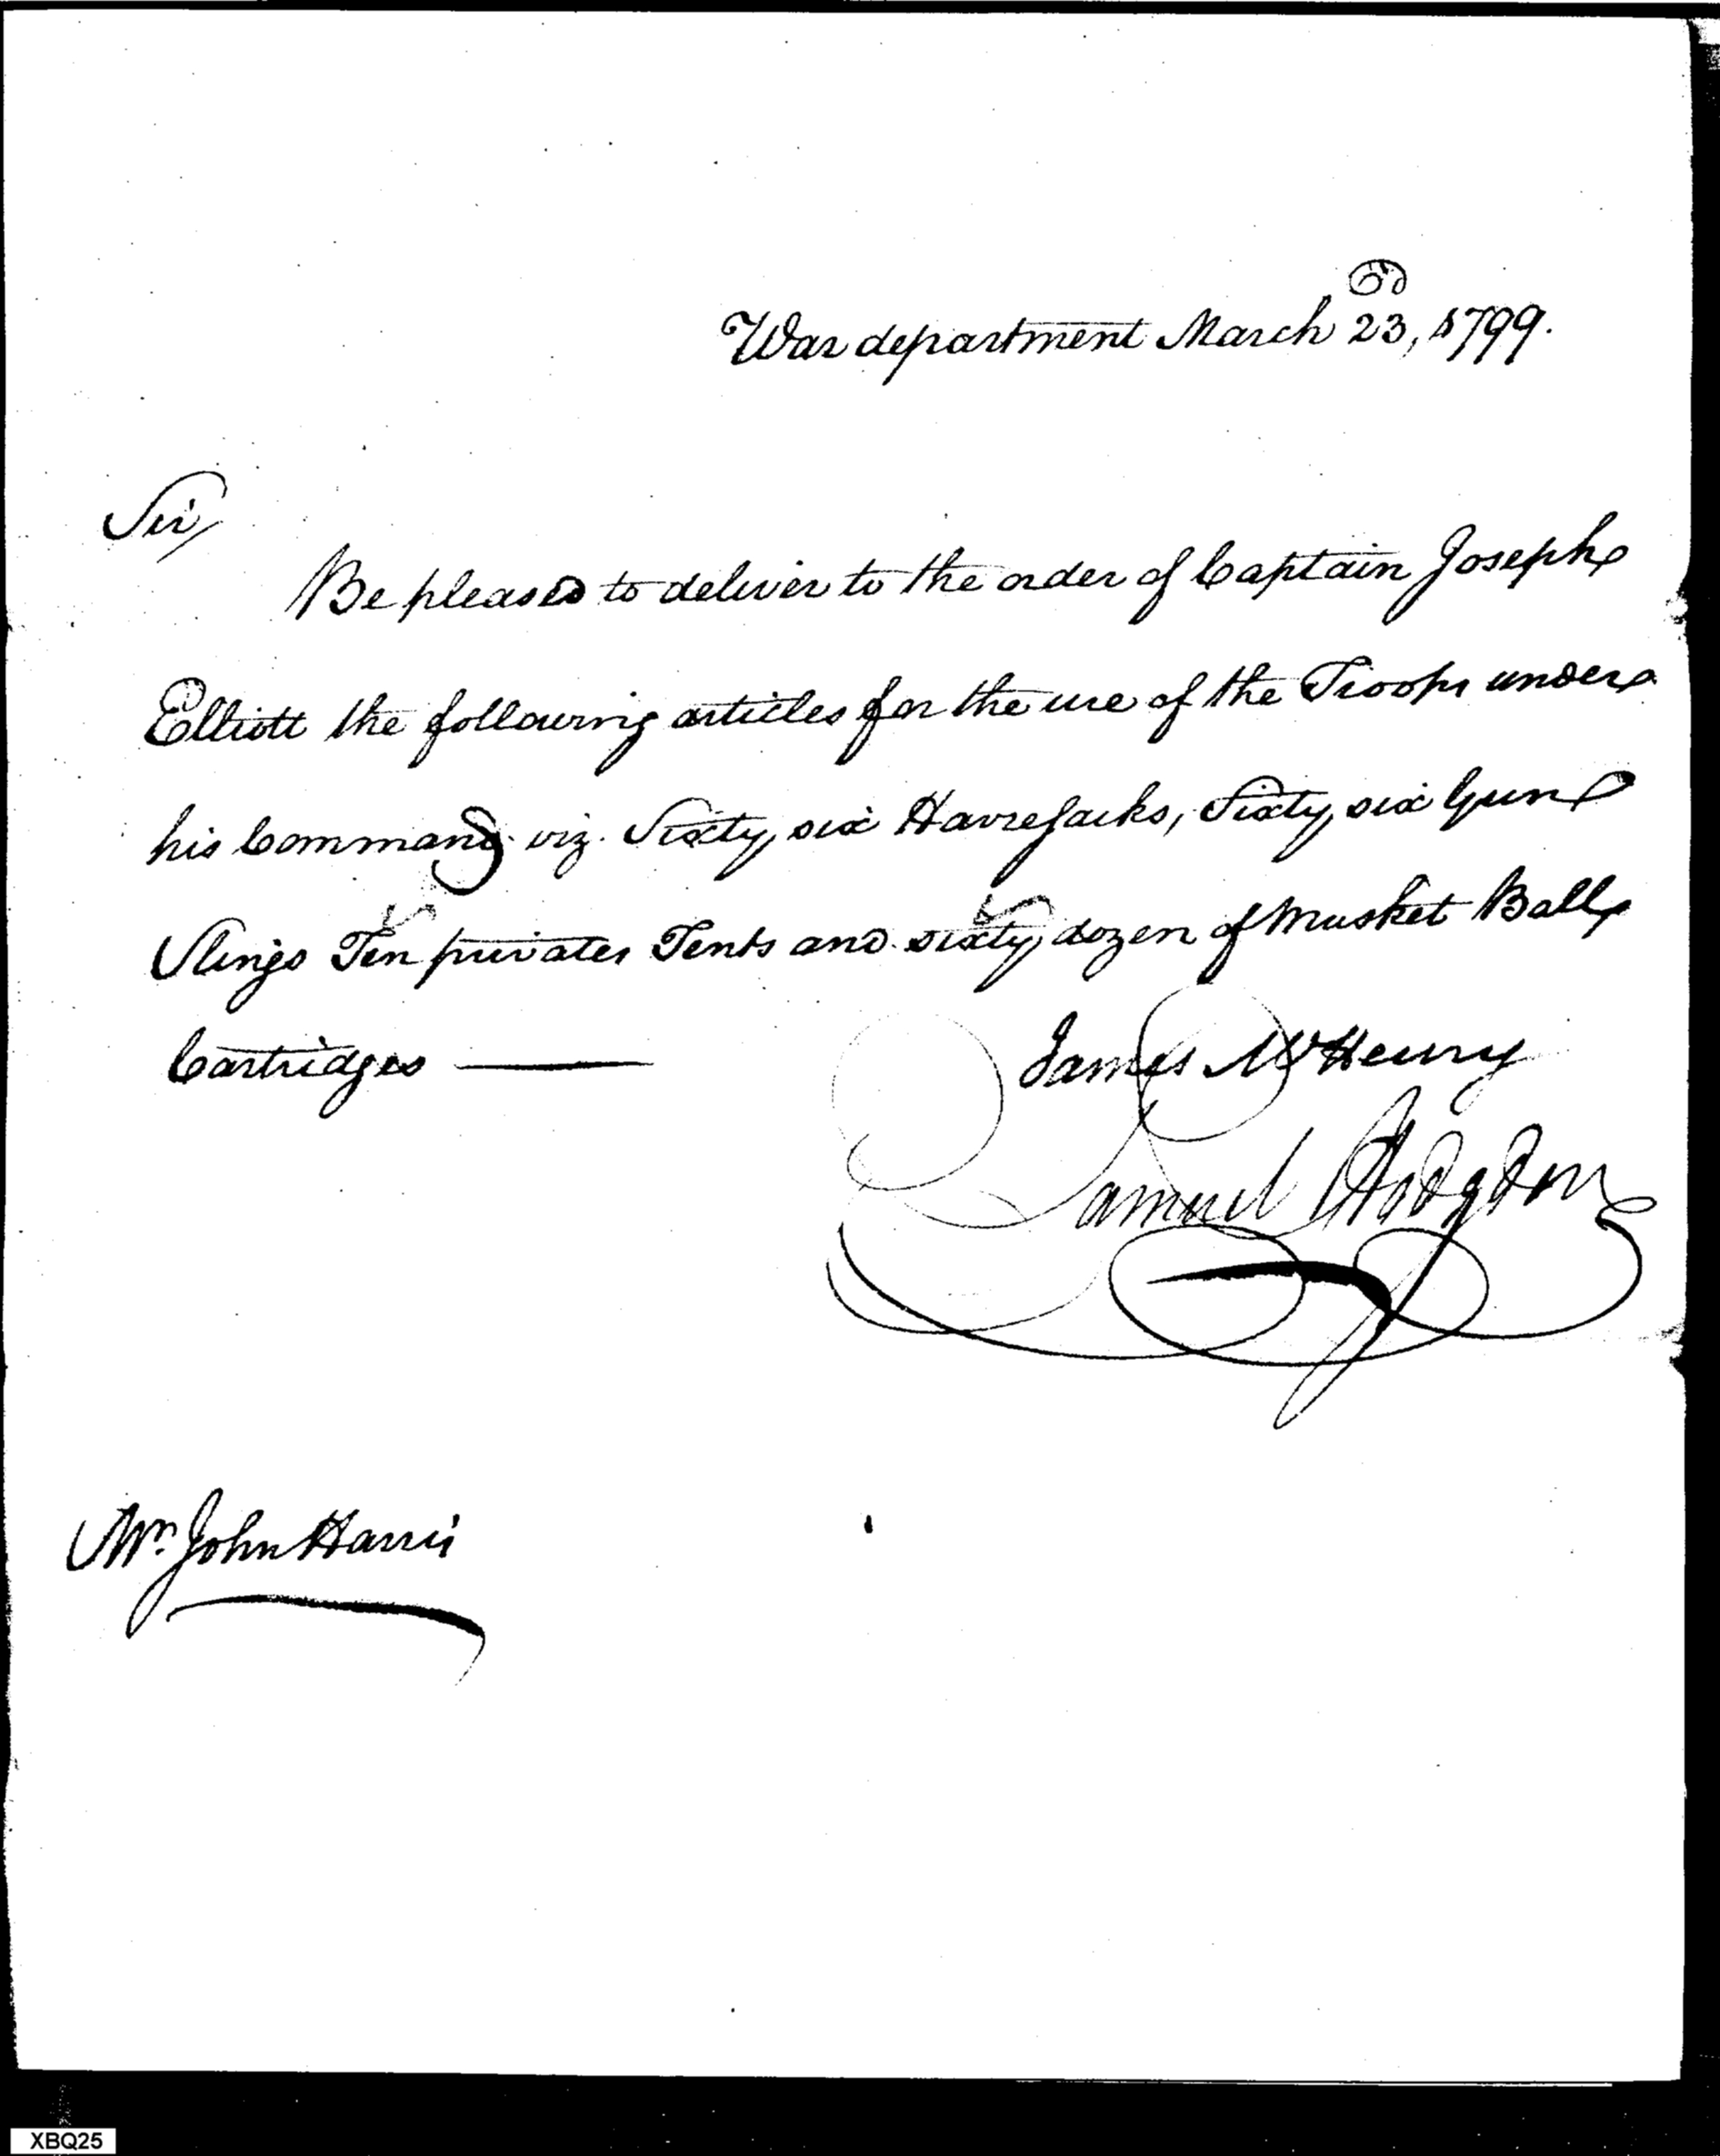 War department March 23d, 1799.
Sir,
Be pleased to deliver to the order of Captain Joseph
Elliott the following articles for the use of the Troops under
his Command viz. Sixty six Haversacks, Sixty six Gun
Slings Ten privates Tents and sixty dozen of Musket Ball
Cartridges
James McHenry
Samuel Hodgdon
Mr. John Harris
XBQ25